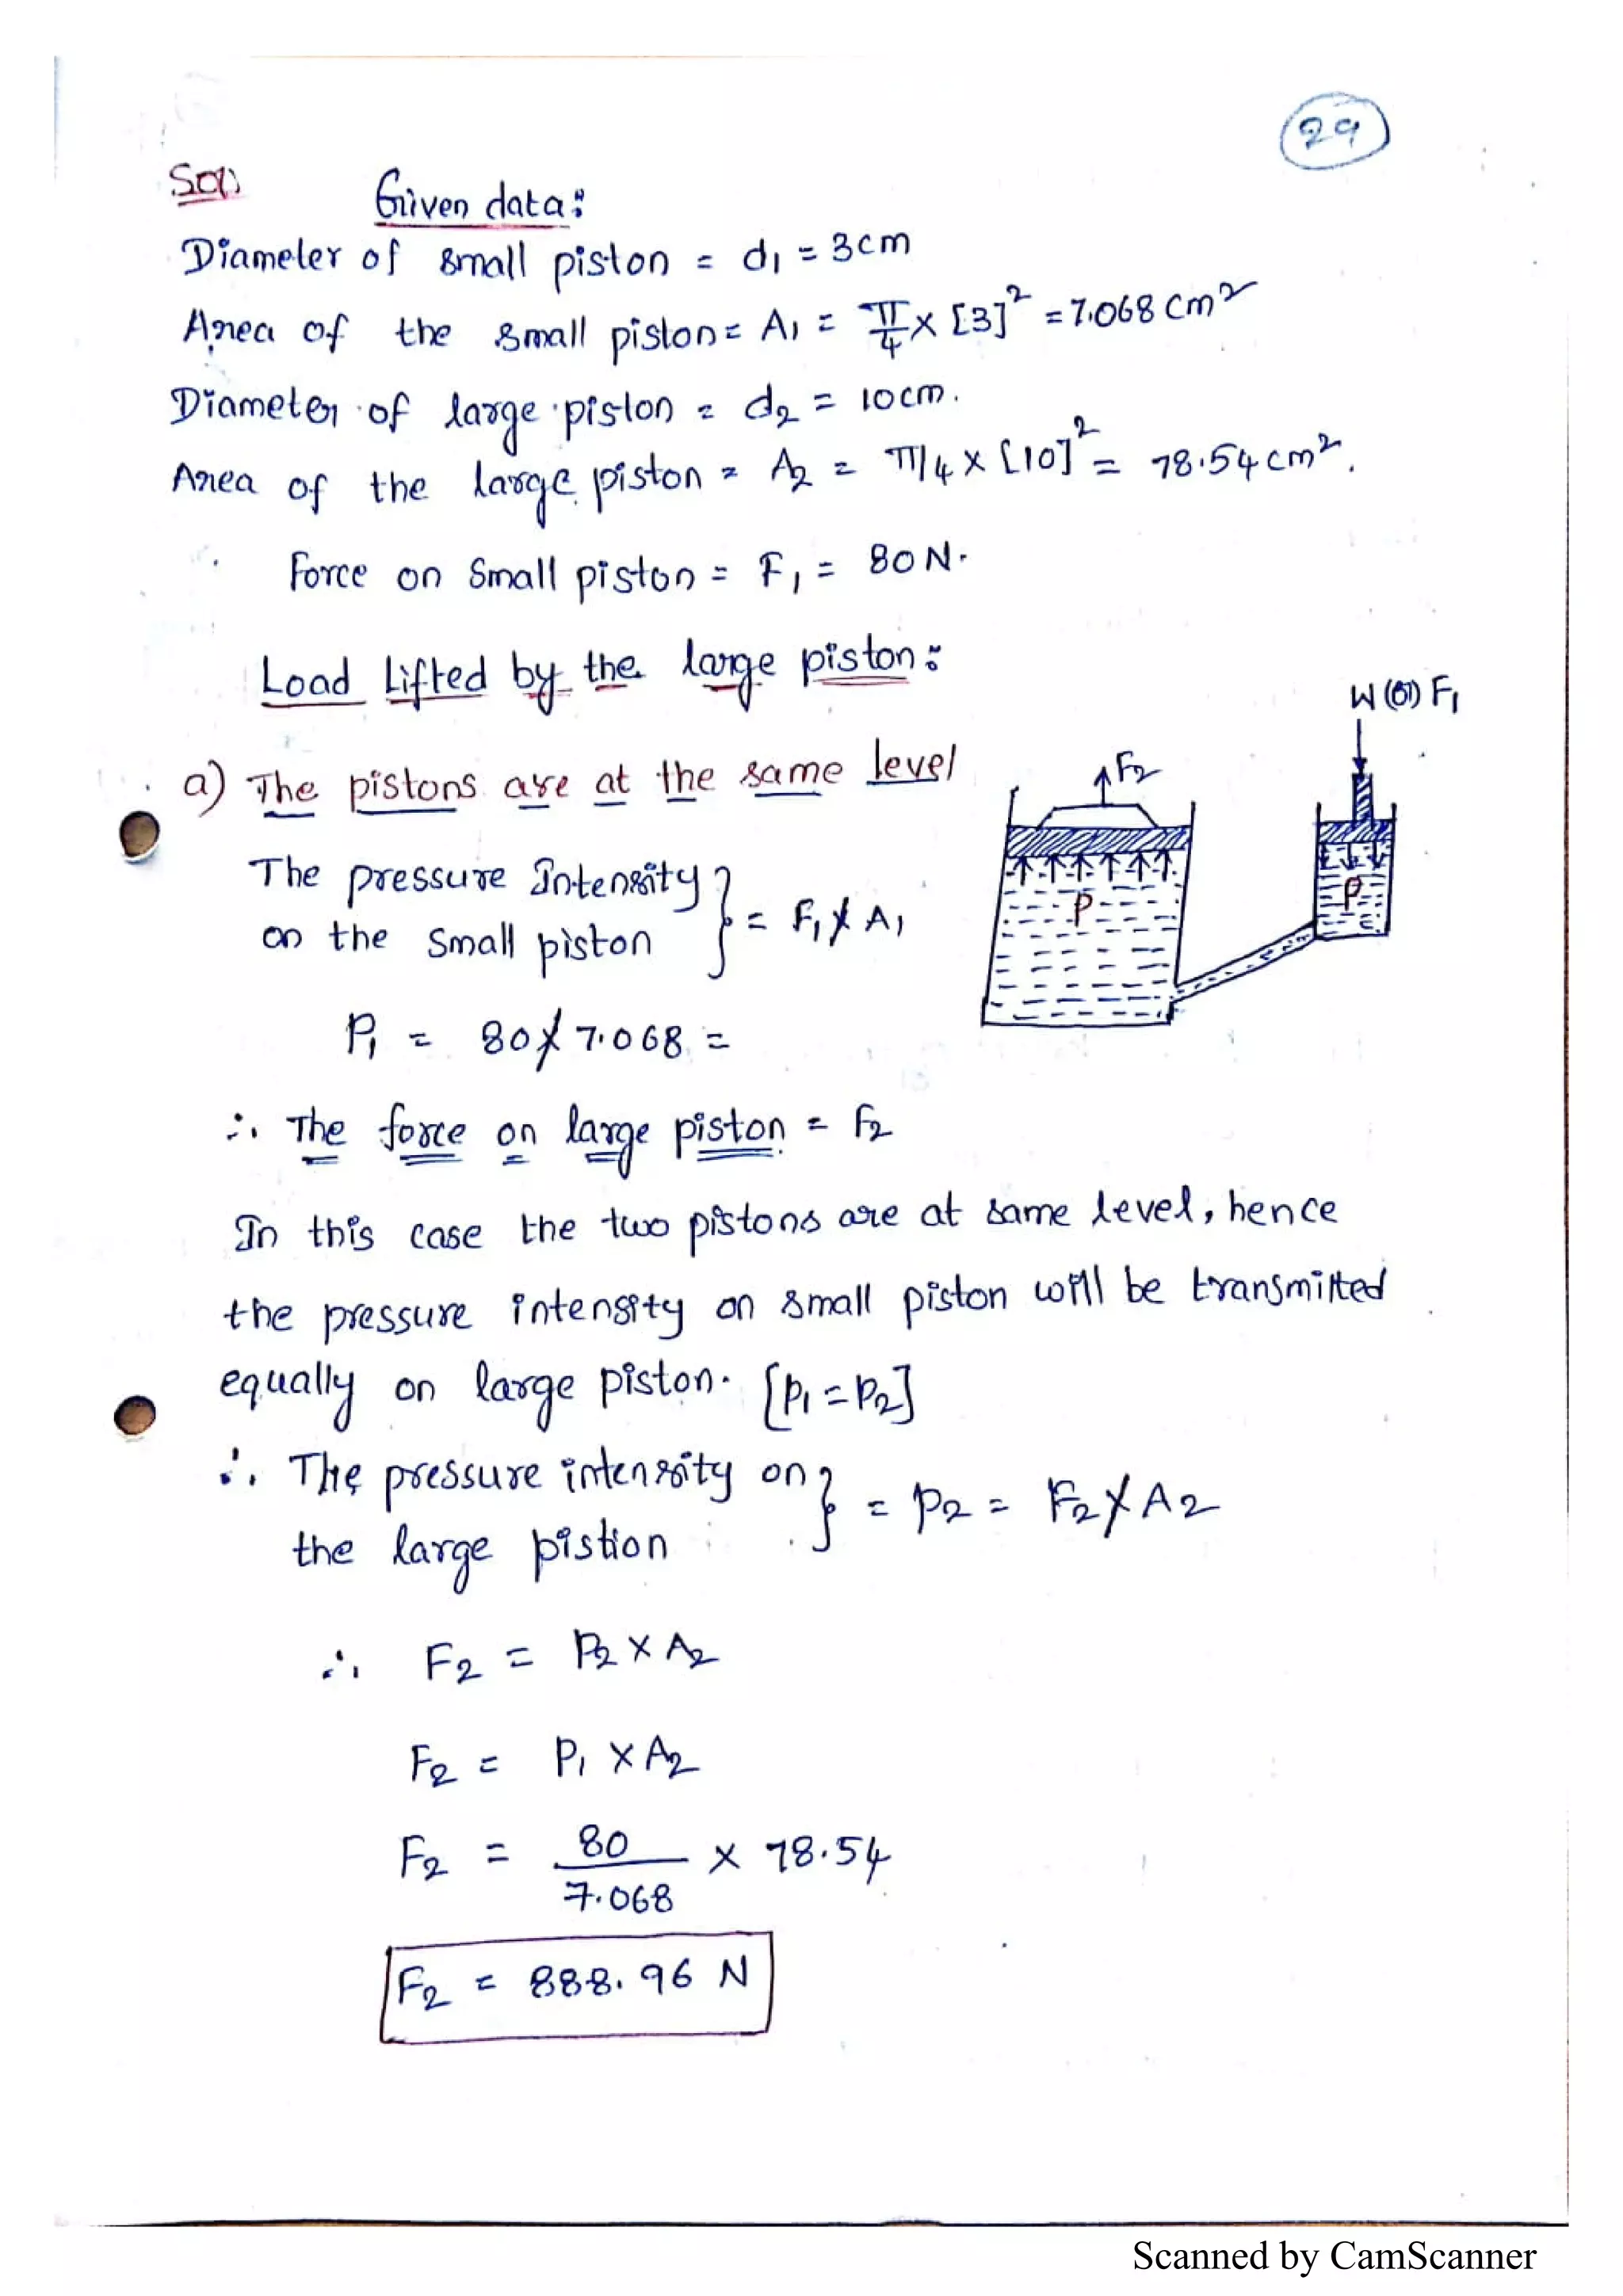 29
Sol)
Given data:
Diameter of small piston = d1 = 3cm
Area of the small piston = A1 = π/4 × [3]² = 7.068 cm²
Diameter of large piston = d2 = 10cm.
Area of the large piston = A2 = π/4 × [10]² = 78.54 cm².
Force on small piston = F1 = 80 N.
Load Lifted by the large piston:
W (or) F1
a) The pistons are at the same level
F2
The pressure Intensity
on the small piston } = F1 / A1
P P
P1 = 80 / 7.068 =
∴ The force on large piston = F2
In this case the two pistons are at same level, hence
the pressure intensity on small piston will be transmitted
equally on large piston. [P1 = P2]
∴ The pressure intensity on
the large pistion } = P2 = F2 / A2
∴ F2 = P2 × A2
F2 = P1 × A2
F2 = 80 / 7.068 × 78.54
F2 = 888.96 N
Scanned by CamScanner